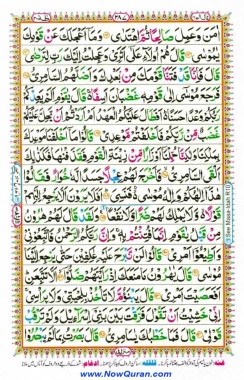 اٰمَنَ وَعَمِلَ صَالِحًا ثُمَّ اهْتَدٰى وَمَاۤ اَعْجَلَكَ عَنْ قَوْمِكَ
يٰمُوْسٰى قَالَ هُمْ اُولَآءِ عَلٰٓى اَثَرِيْ وَعَجِلْتُ اِلَيْكَ رَبِّ لِتَرْضٰى
قَالَ فَاِنَّا قَدْ فَتَنَّا قَوْمَكَ مِنْۢ بَعْدِكَ وَاَضَلَّهُمُ السَّامِرِيُّ
فَرَجَعَ مُوْسٰٓى اِلٰى قَوْمِهٖ غَضْبَانَ اَسِفًا قَالَ يٰقَوْمِ اَلَمْ يَعِدْكُمْ
رَبُّكُمْ وَعْدًا حَسَنًا اَفَطَالَ عَلَيْكُمُ الْعَهْدُ اَمْ اَرَدْتُّمْ اَنْ يَّحِلَّ عَلَيْكُمْ
غَضَبٌ مِّنْ رَّبِّكُمْ فَاَخْلَفْتُمْ مَّوْعِدِيْ قَالُوْا مَاۤ اَخْلَفْنَا مَوْعِدَكَ
بِمَلْكِنَا وَلٰكِنَّا حُمِّلْنَاۤ اَوْزَارًا مِّنْ زِيْنَةِ الْقَوْمِ فَقَذَفْنٰهَا فَكَذٰلِكَ
اَلْقَى السَّامِرِيُّ فَاَخْرَجَ لَهُمْ عِجْلًا جَسَدًا لَّهٗ خُوَارٌ فَقَالُوْا
هٰذَاۤ اِلٰهُكُمْ وَاِلٰهُ مُوْسٰى فَنَسِيَ اَفَلَا يَرَوْنَ اَلَّا يَرْجِعُ اِلَيْهِمْ
قَوْلًا وَّلَا يَمْلِكُ لَهُمْ ضَرًّا وَّلَا نَفْعًا وَلَقَدْ قَالَ لَهُمْ هٰرُوْنُ
مِنْ قَبْلُ يٰقَوْمِ اِنَّمَا فُتِنْتُمْ بِهٖ وَاِنَّ رَبَّكُمُ الرَّحْمٰنُ فَاتَّبِعُوْنِيْ
وَاَطِيْعُوْۤا اَمْرِيْ قَالُوْا لَنْ نَّبْرَحَ عَلَيْهِ عٰكِفِيْنَ حَتّٰى يَرْجِعَ اِلَيْنَا
مُوْسٰى قَالَ يٰهٰرُوْنُ مَا مَنَعَكَ اِذْ رَاَيْتَهُمْ ضَلُّوْۤا اَلَّا تَتَّبِعَنِ
اَفَعَصَيْتَ اَمْرِيْ قَالَ يَبْنَؤُمَّ لَا تَاْخُذْ بِلِحْيَتِيْ وَلَا بِرَاْسِيْ
اِنِّيْ خَشِيْتُ اَنْ تَقُوْلَ فَرَّقْتَ بَيْنَ بَنِيْۤ اِسْرَآءِيْلَ وَلَمْ تَرْقُبْ
قَوْلِيْ قَالَ فَمَا خَطْبُكَ يٰسَامِرِيُّ قَالَ بَصُرْتُ بِمَا لَمْ يَبْصُرُوْا
www.NowQuran.com